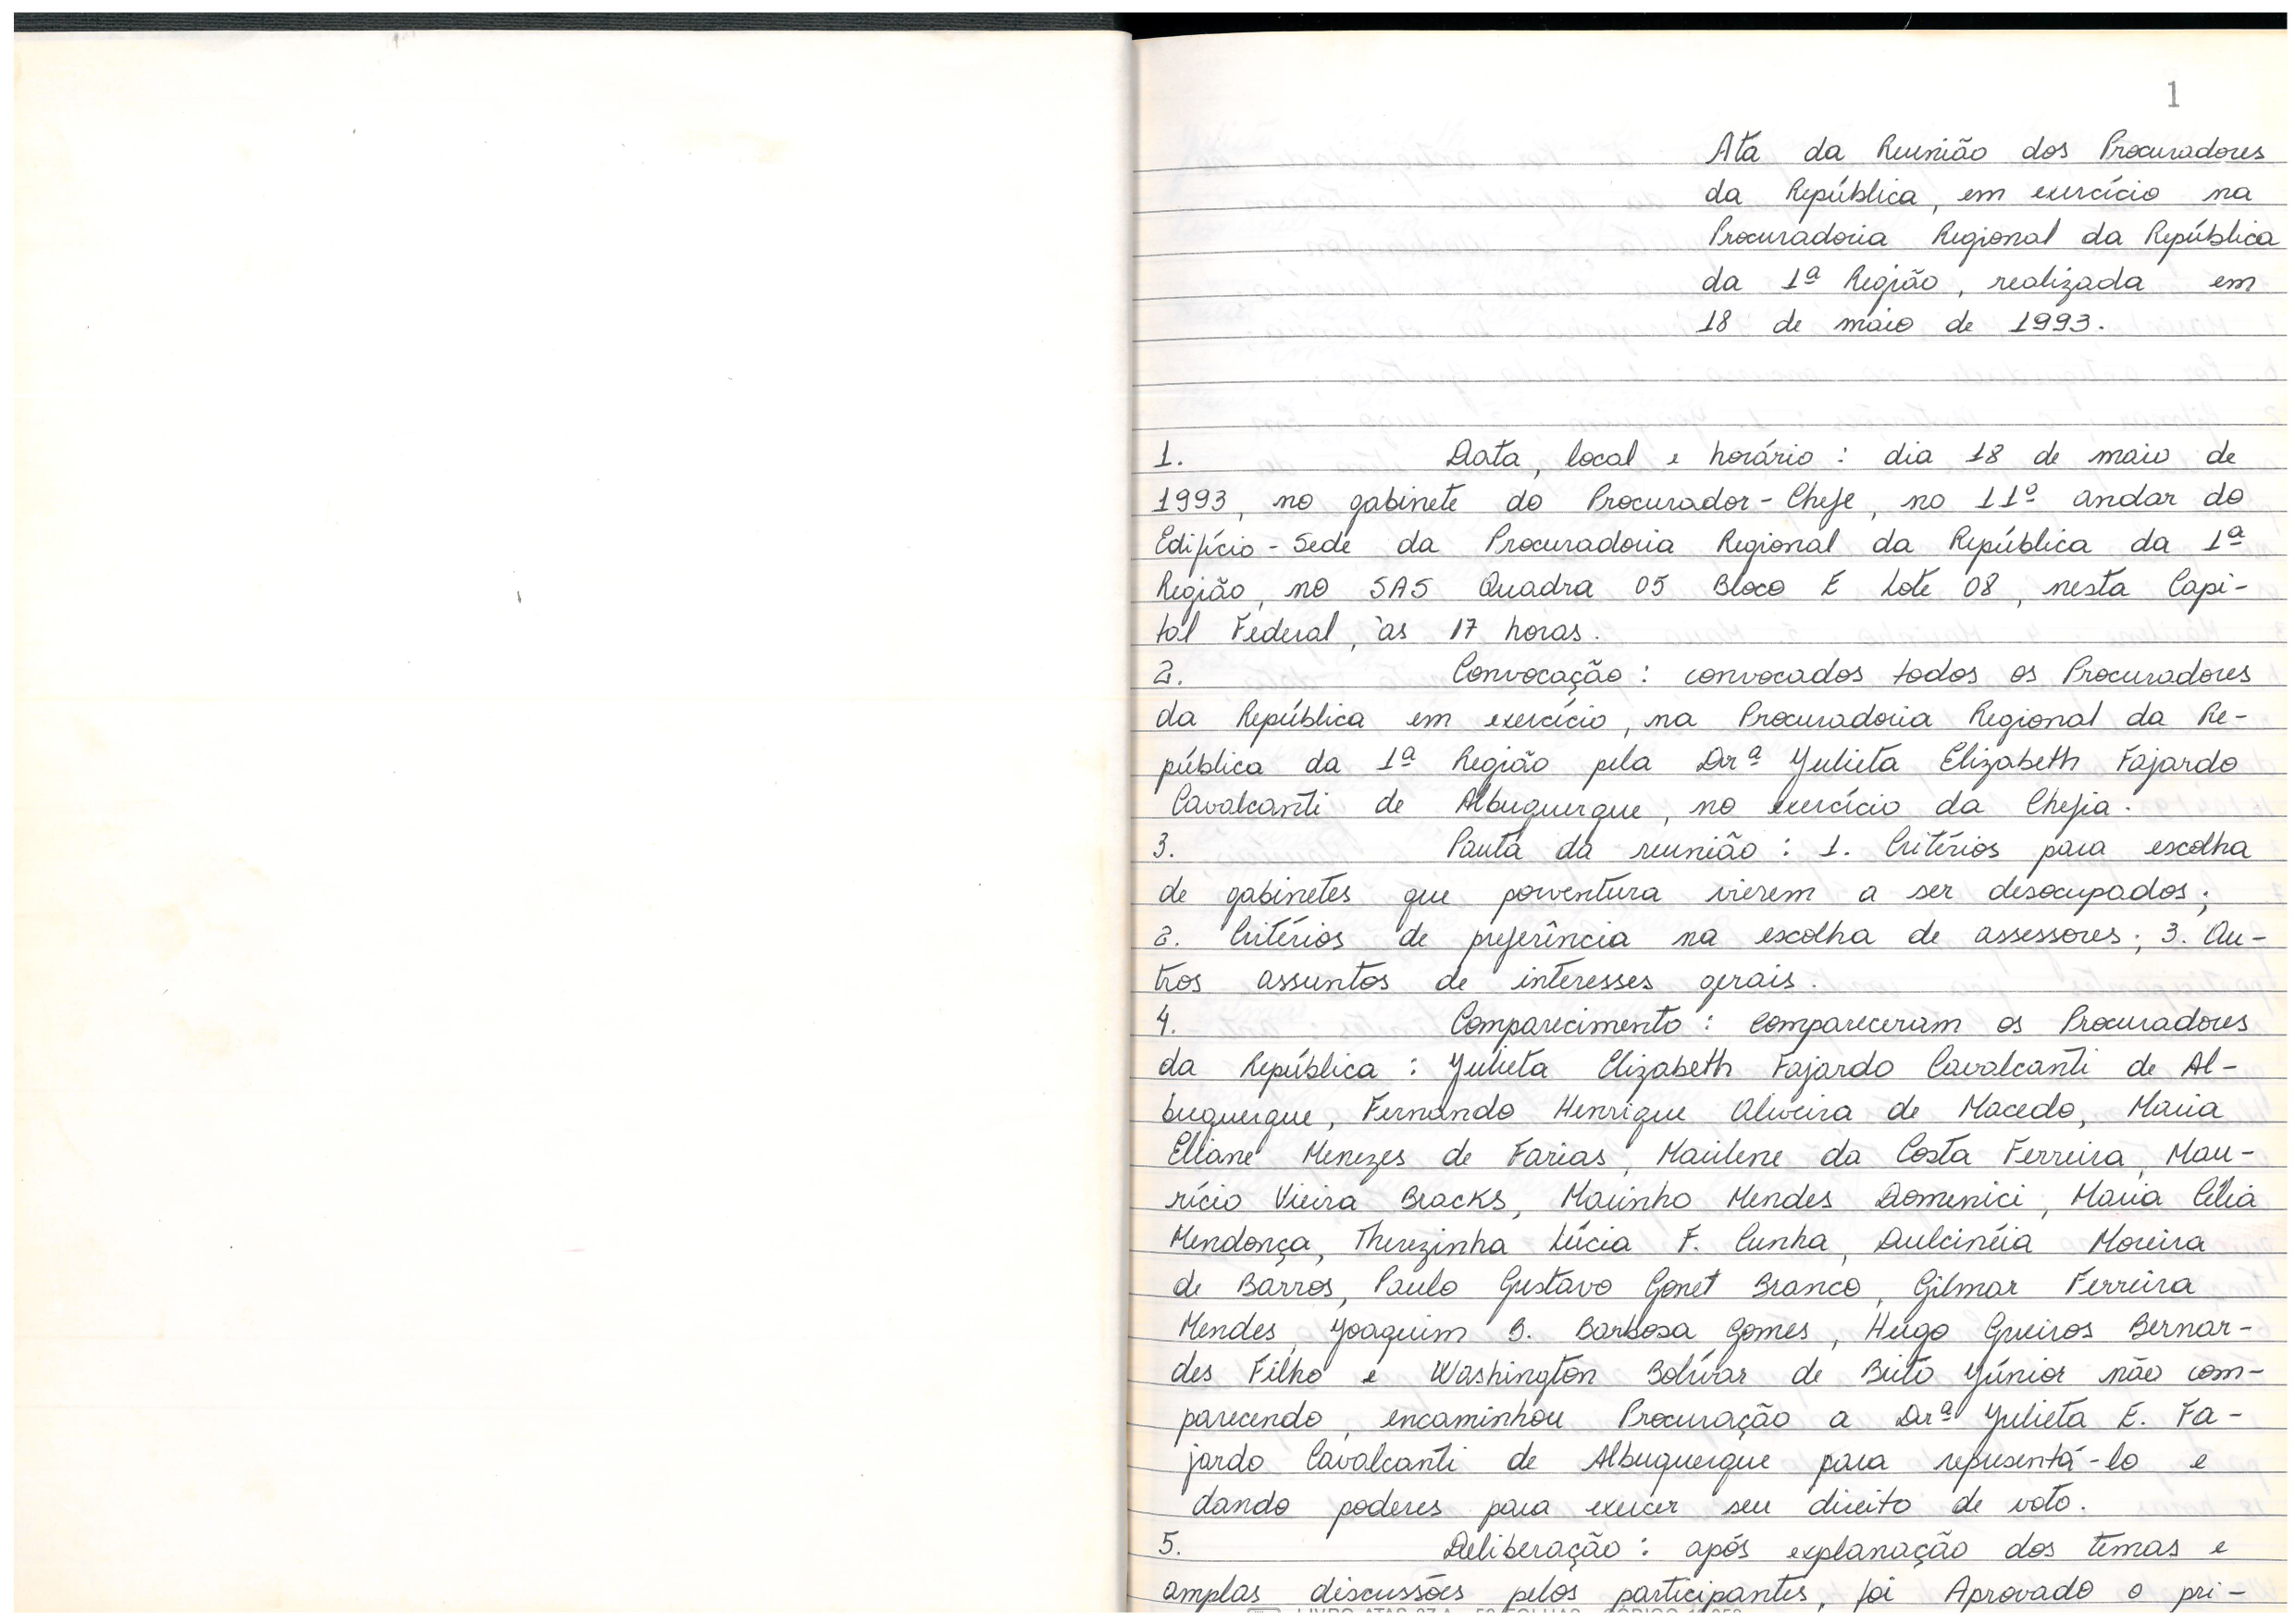 1
Ata da Reunião dos Procuradores
da República, em exercício na
Procuradoria Regional da República
da 1ª Região, realizada em
18 de maio de 1993.
1. Data, local e horário : dia 18 de maio de
1993, no gabinete do Procurador-Chefe, no 11º andar do
Edifício-Sede da Procuradoria Regional da República da 1ª
Região, no SAS Quadra 05 Bloco E Lote 08, nesta Capi-
tal Federal, às 17 horas.
2. Convocação : convocados todos os Procuradores
da República em exercício, na Procuradoria Regional da Re-
pública da 1ª Região pela Drª Yulieta Elizabeth Fajardo
Cavalcanti de Albuquerque, no exercício da Chefia.
3. Pauta da reunião : 1. Critérios para escolha
de gabinetes que porventura vierem a ser desocupados;
2. Critérios de preferência na escolha de assessores; 3. Ou-
tros assuntos de interesses gerais.
4. Comparecimento : compareceram os Procuradores
da República : Yulieta Elizabeth Fajardo Cavalcanti de Al-
buquerque, Fernando Henrique Oliveira de Macedo, Maria
Eliane Menezes de Farias, Marilene da Costa Ferreira, Mau-
rício Vieira Bracks, Marinho Mendes Domenici, Maria Célia
Mendonça, Therezinha Lúcia F. Cunha, Dulcinéia Moreira
de Barros, Paulo Gustavo Gonet Branco, Gilmar Ferreira
Mendes, Yoaquim B. Barbosa Gomes, Hugo Gueiros Bernar-
des Filho e Washington Bolívar de Brito Yúnior não com-
parecendo, encaminhou Procuração a Drª Yulieta E. Fa-
jardo Cavalcanti de Albuquerque para representá-lo e
dando poderes para exercer seu direito de voto.
5. Deliberação : após explanação dos temas e
amplas discussões pelos participantes, foi Aprovado o pri-